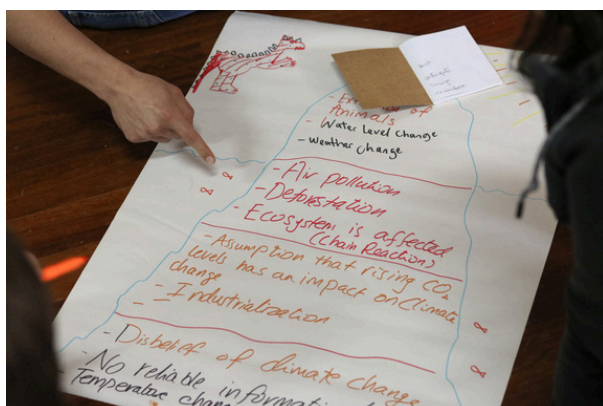 of
Animals
- Water Level Change
- Weather Change
- Air pollution
- Deforestation
- Ecosystem is affected
(Chain Reaction)
- Assumption that rising CO2
levels has an impact on Climate
change
- Industrialization
- Disbelief of climate change
- No reliable
Temperature